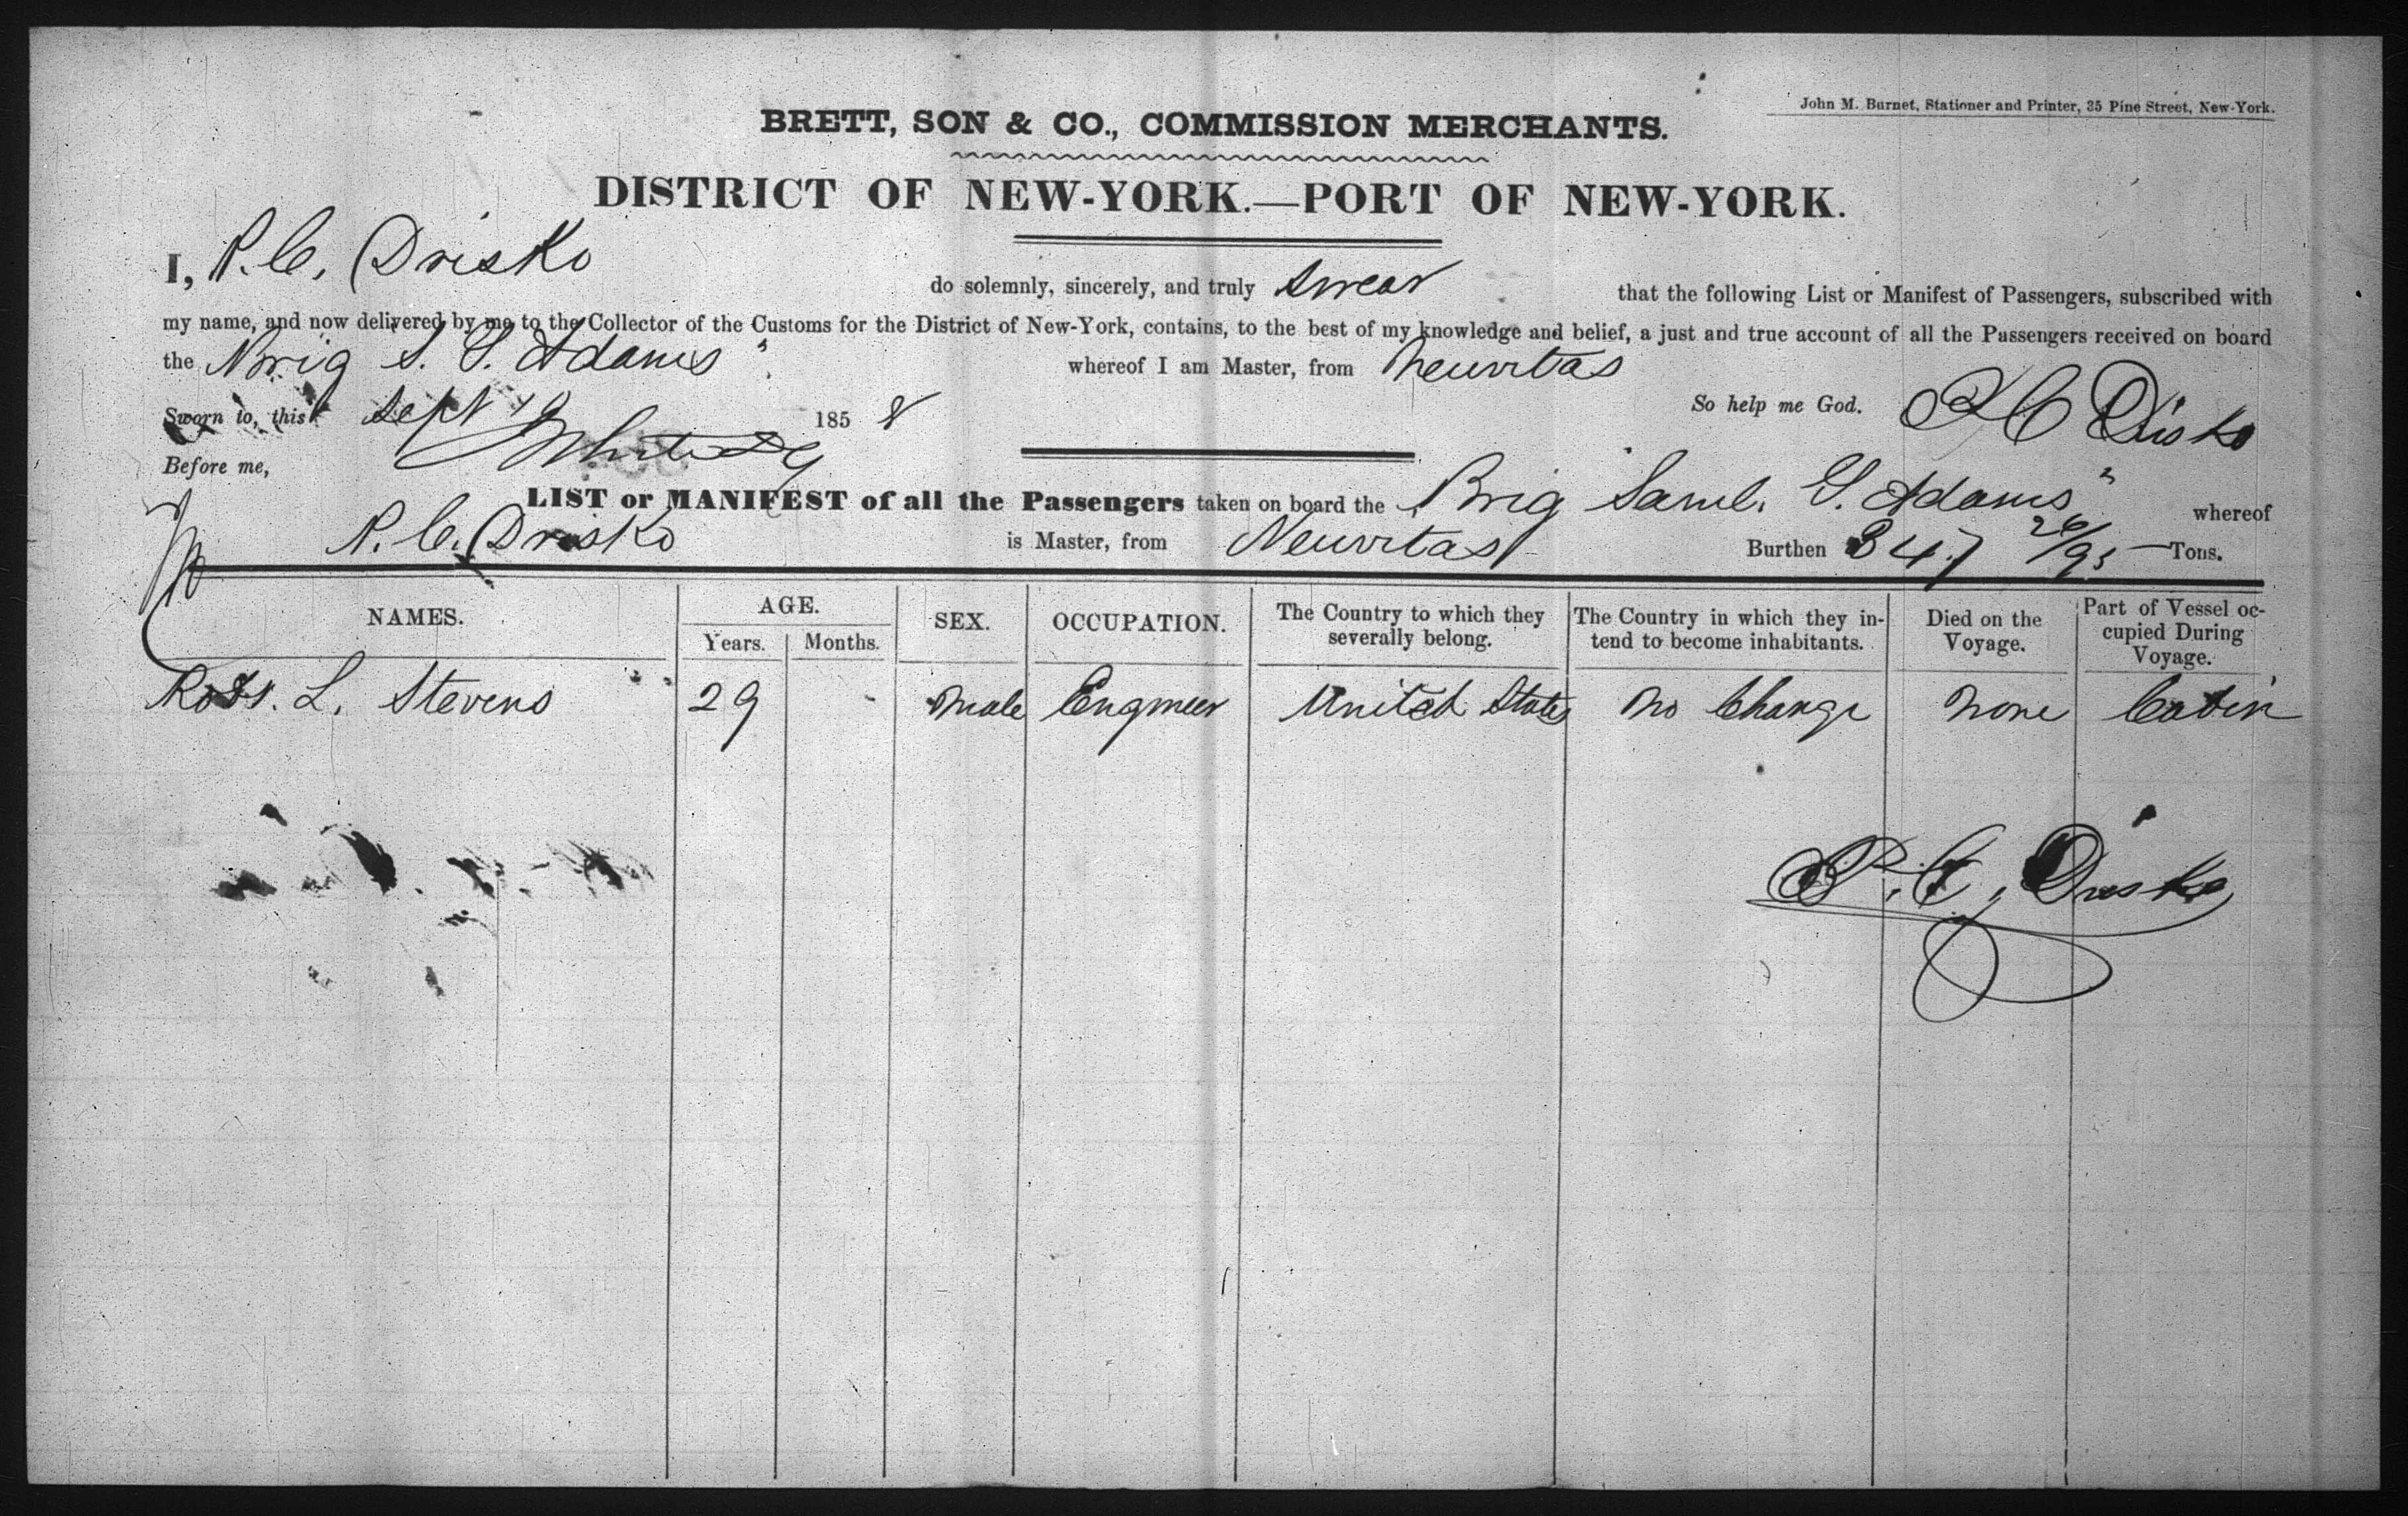 John M. Burnet, Stationer and Printer, 35 Pine Street, New-York.
BRETT, SON & CO., COMMISSION MERCHANTS.
DISTRICT OF NEW-YORK.—PORT OF NEW-YORK.
I, P. C. Drisko do solemnly, sincerely, and truly swear that the following List or Manifest of Passengers, subscribed with
my name, and now delivered by me to the Collector of the Customs for the District of New-York, contains, to the best of my knowledge and belief, a just and true account of all the Passengers received on board
the Brig S. G. Adams" whereof I am Master, from Neuvitas
Sworn to, this Sept 1858 So help me God. P C Drisko
Before me,
LIST or MANIFEST of all the Passengers taken on board the Brig Saml. G. Adams" whereof
P. C. Drisko is Master, from Neuvitas Burthen 347 26/95 Tons.
NAMES. AGE. Years. Months. SEX. OCCUPATION. The Country to which they severally belong. The Country in which they intend to become inhabitants. Died on the Voyage. Part of Vessel occupied During Voyage.
L. Stevens 29 male Engineer United States no Change none Cabin
P. C. Drisko